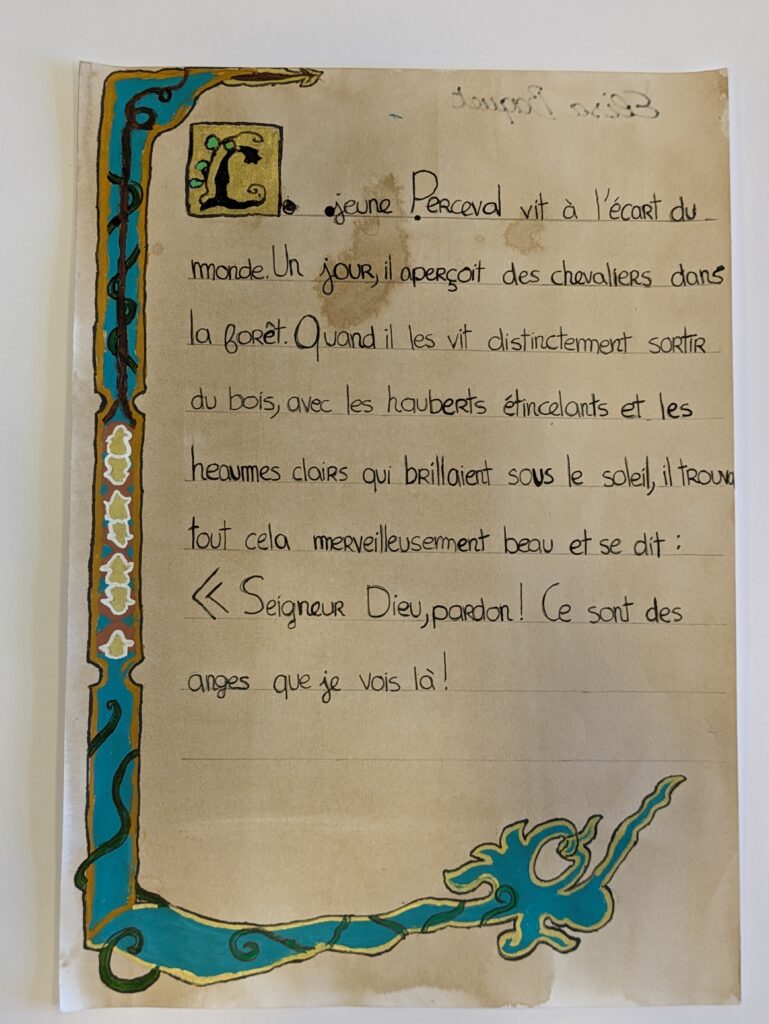 Elisa
Le jeune Perceval vit à l'écart du
monde. Un jour, il aperçoit des chevaliers dans
la forêt. Quand il les vit distinctement sortir
du bois, avec les hauberts étincelants et les
heaumes clairs qui brillaient sous le soleil, il trouva
tout cela merveilleusement beau et se dit :
« Seigneur Dieu, pardon ! Ce sont des
anges que je vois là !